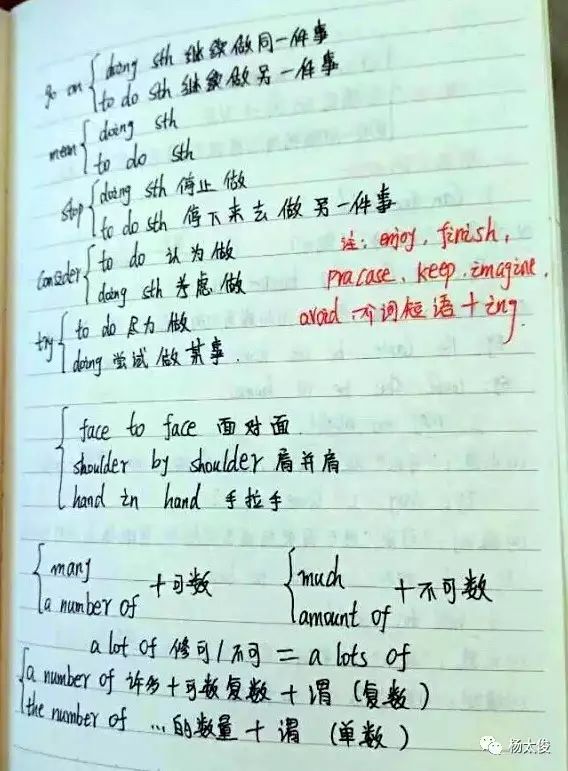 go on { doing sth 继续做同一件事
to do sth 继续做另一件事
mean { doing sth
to do sth
stop { doing sth 停止做
to do sth 停下来去做另一件事
consider { to do 认为做
doing sth 考虑做
注: enjoy, finish,
pracase, keep, imagine,
avoid, 介词短语 + ing
try { to do 尽力做
doing 尝试做某事.
{ face to face 面对面
shoulder by shoulder 肩并肩
hand in hand 手拉手
{ many
a number of + 可数
{ much
amount of + 不可数
a lot of 修可/不可 = a lots of
{ a number of 许多+可数复数+谓 (复数)
the number of ...的数量+谓 (单数)
杨太俊